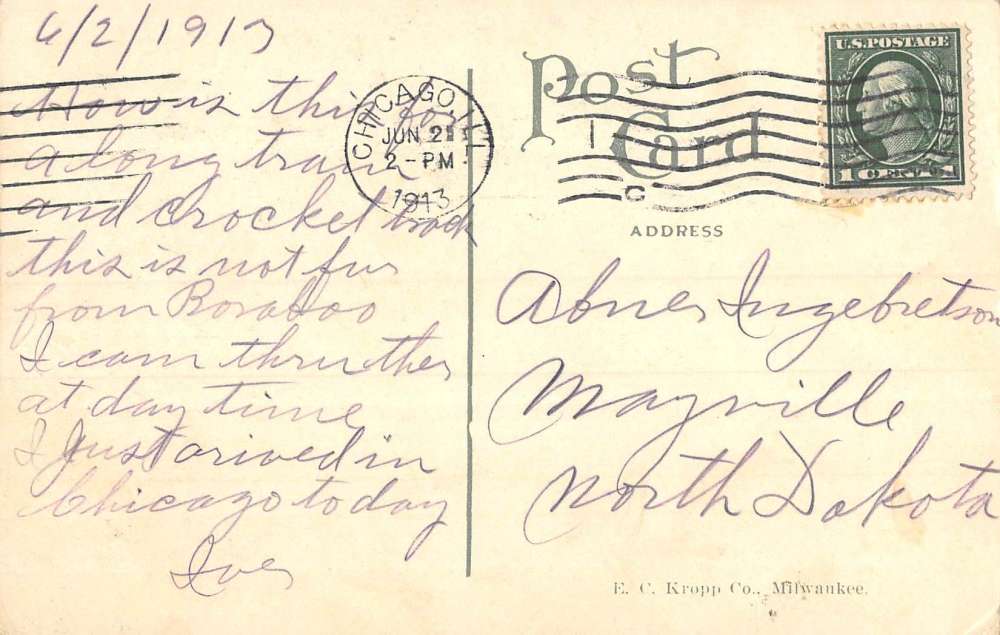 6/2/1913
How is this for
a long train
and crocket track
this is not fur
from Boraboo
I cam thru ther
at day time
I Just arived in
Chicago today
CHICAGO, ILL
JUN 2
2-PM
1913
Post
Card
U.S. POSTAGE
1 CENT
ADDRESS
Abner Ingebretson
Mayville
North Dakota
E. C. Kropp Co., Milwaukee.